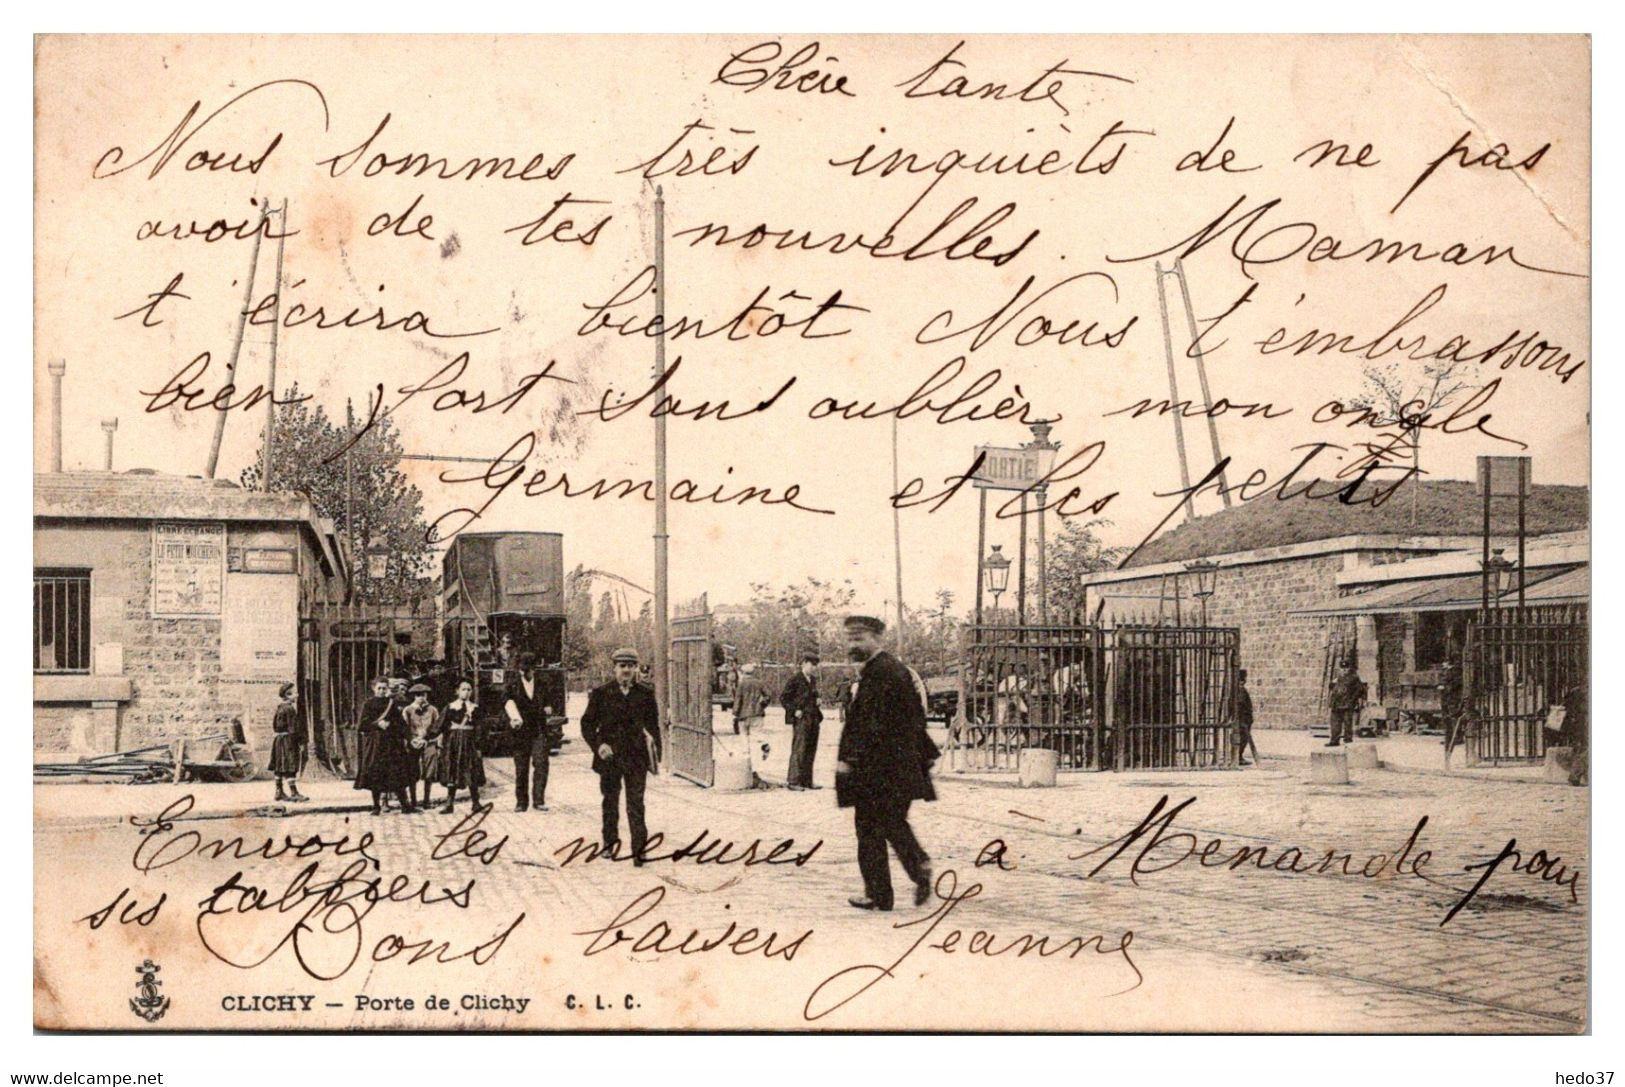 Chère tante
Nous sommes très inquièts de ne pas
avoir de tes nouvelles. Maman
t'écrira bientôt Nous t'émbrassons
bien fort sans oublièr mon oncle
Germaine et les petits
SORTIE
LIBRE ECHANGE
LE PETIT MOUCHERON
Envoie les mesures à Menande pour
ses tabliers
Bons baisers Jeanne
CLICHY — Porte de Clichy C. L. C.
www.delcampe.net
hedo37